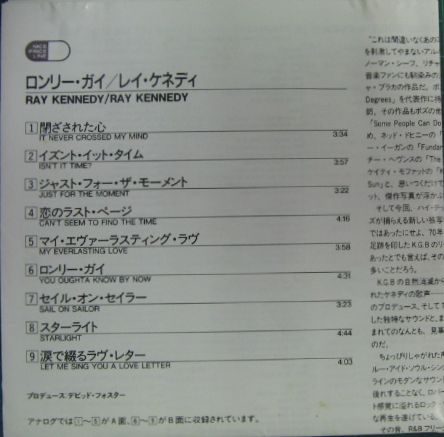 NICE
PRICE
LINE
ロンリー・ガイ／レイ・ケネディ
RAY KENNEDY/RAY KENNEDY
1 閉ざされた心
IT NEVER CROSSED MY MIND 3:34
2 イズント・イット・タイム
ISN'T IT TIME? 3:57
3 ジャスト・フォー・ザ・モーメント
JUST FOR THE MOMENT 3:22
4 恋のラスト・ページ
CAN'T SEEM TO FIND THE TIME 4:16
5 マイ・エヴァーラスティング・ラヴ
MY EVERLASTING LOVE 3:58
6 ロンリー・ガイ
YOU OUGHTA KNOW BY NOW 4:31
7 セイル・オン・セイラー
SAIL ON SAILOR 3:23
8 スターライト
STARLIGHT 4:44
9 涙で綴るラヴ・レター
LET ME SING YOU A LOVE LETTER 4:03
プロデュース:デビッド・フォスター
アナログでは1〜5がA面、6〜9がB面に収録されています。
"これは間違いなくあの
を刺激してやまないアル
ノーマン・シーフ、リチャ
音楽ファンにも馴染みの
ャ・ブラカの作品だ。ボ
Degrees」を代表作に
「Some People Can Do
め、ネッド・ドヒニーの「
ー・イーガンの「Fundar
チー・ヘヴンスの「The
ケイティ・モファットの「
Sun」と、思いつくだけで
ット、傑作写真が浮かぶ
そして今回、ハイ・テ
ズが捕らえる新しい
ではあったにせよ、70年
足跡を印したK.G.Bのリ
あったとでも言えば、その
多いことだろう。
K.G.Bの自然消滅か
れたケネディの歌声
のプロデュース、そして
した独特なサウンドと、ま
まれてのなんとも、見事
のだ。
ちょっぴりしゃがれた
ルー・アイド・ソウル・シン
ラインのモダンなサウン
後れすることなく、ロバー
ト感覚に溢れるロック・
な再生を遂げている。
その昔、R&Bフリー